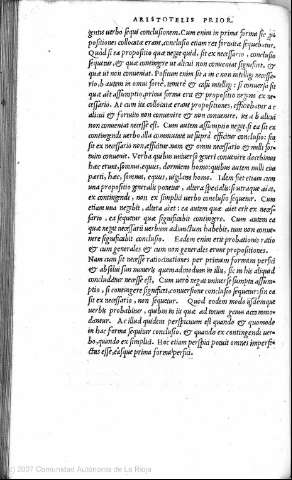 ARISTOTELIS PRIOR.
gentis verbo sequi conclusionem. Cum enim in prima forma sic propositiones
positiones collocatæ erant, conclusio etiam necessario sequebatur.
Quòd si ea propositio quæ negat quid, sit ex necessario, conclusio
sequetur, & quæ contingere ut alicui non conveniat significet, &
quæ ut non conveniat. Positum enim sit a in c non intelligi necessario,
b autem in omni foret, inerit & casu intelligi: si conversa sit
quæ ait assumptio, prima forma erit & propositio negans ex necessario.
At cum ita collocatæ erant propositiones, efficiebatur a c
alicui & fortuito non convenire & non convenire, ita a b alicui
non conveniat necesse est. Cum autem assumptio negat si ea sit ex
contingendi verbo, illa commutata ut suprà efficitur conclusio: sin
sit ex necessario non efficitur. nam & omni necessario & nulli fortuitò
convenit. Verba quibus universo generi convenire docebimus
hæc erunt, somnus, equus, dormiens homo: quibus autem nulli cui
parti, hæc, somnus, equus, vigilans homo. Idem fiet etiam cum
una propositio generalis ponetur, altera specialis: si utraque aiat,
ex contingendi, non ex simplici verbo conclusio sequetur. Cum
etiam una negabit, altera aiet: ea autem quæ aiet erit ex necessario,
ea sequetur quæ significabit contingere. Cum autem ea
quæ negat necessarii verbum adiunctum habebit, tum non convenire
significabit conclusio. Eadem enim erit probationis ratio
& cum generales & cum non generales erunt propositiones.
Nam cum sit necesse ratiocinationes per primam formam perfici
& absolui, in nunc quemadmodum in illis, sic in his aliquid
concludatur necesse est. Cum verò negat universè sumpta assumptio,
si contingere significet, conversione conclusio sequetur: sin ea
sit ex necessario, non sequetur. Quod eodem modo iisdemque
verbis probabitur, quibus in iis quæ ad unum genus accommodantur.
Ac illud quidem perspicuum est quando & quomodo
in hac forma sequitur conclusio, & quando ex contingendi verbo,
quando ex simplici. Hoc etiam perspici potuit omnes imperfectas
esse, easque prima forma perfici.
(c) 2007 Comunidad Autónoma de La Rioja